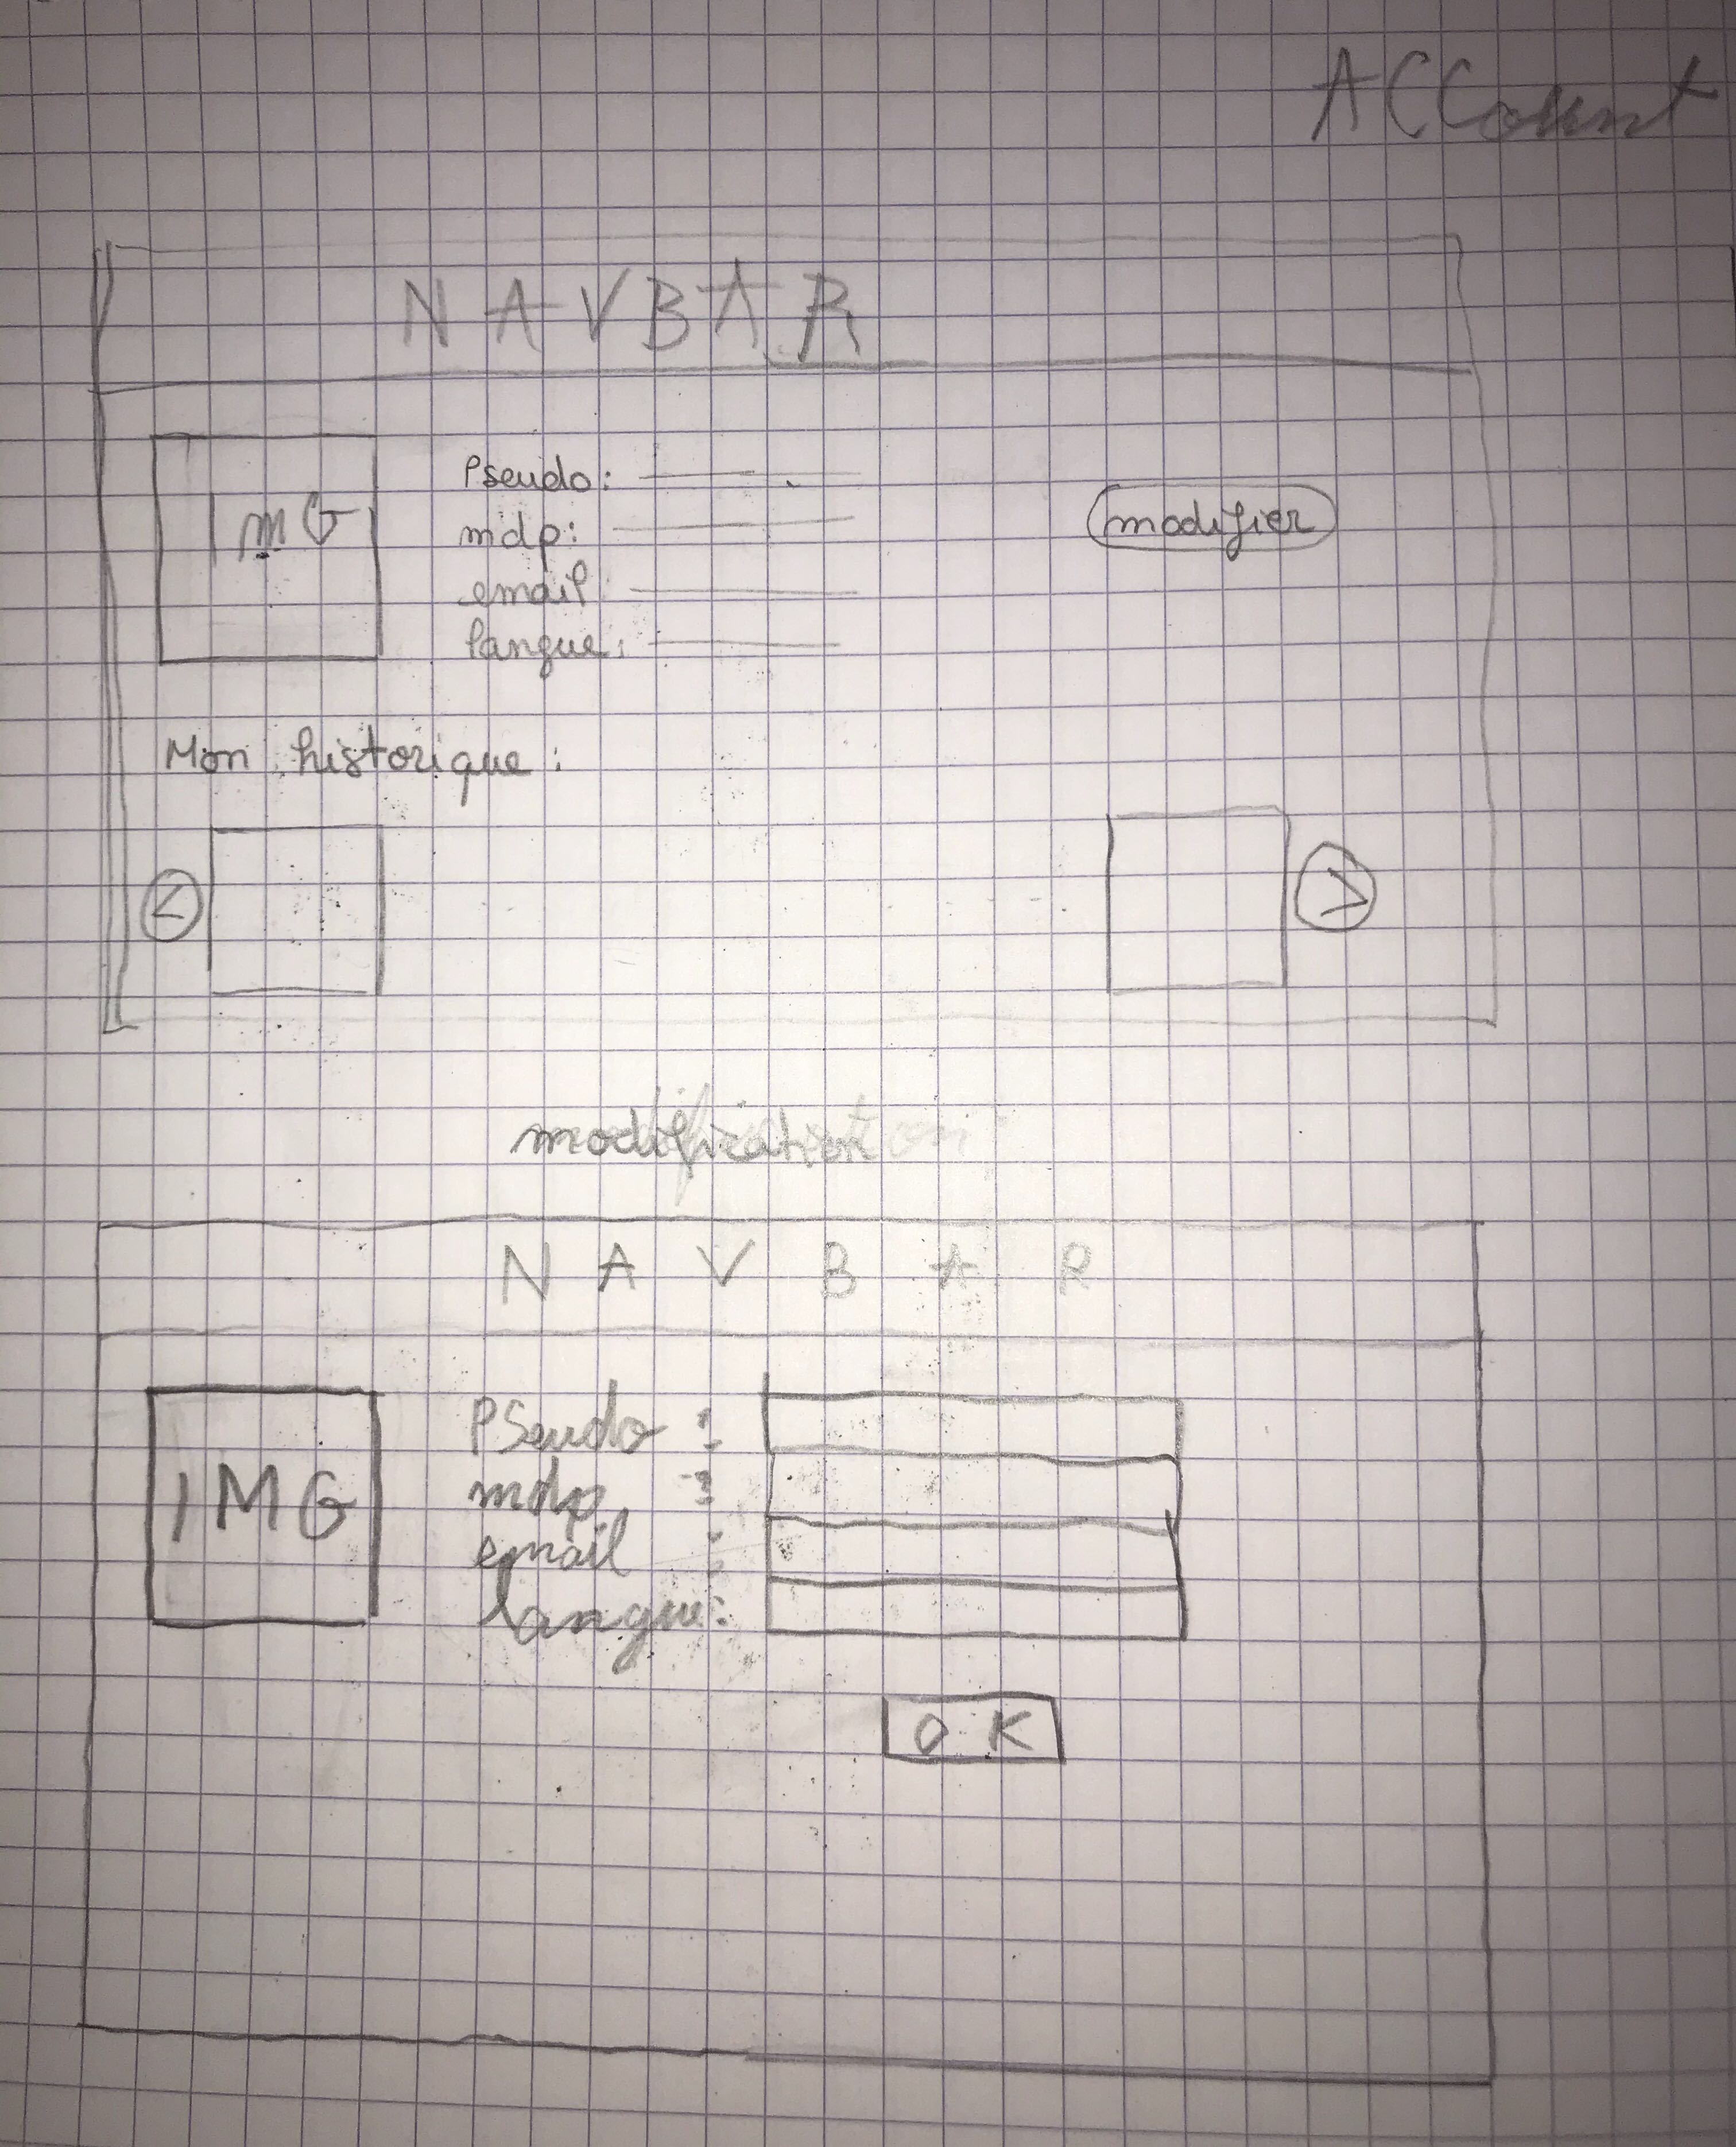 ACCount
NAVBAR
ImG
Pseudo:
mdp:
email:
langue:
modifier
Mon historique:
<
>
modification
NAVBAR
IMG
PSeudo :
mdp :
email :
langue:
OK